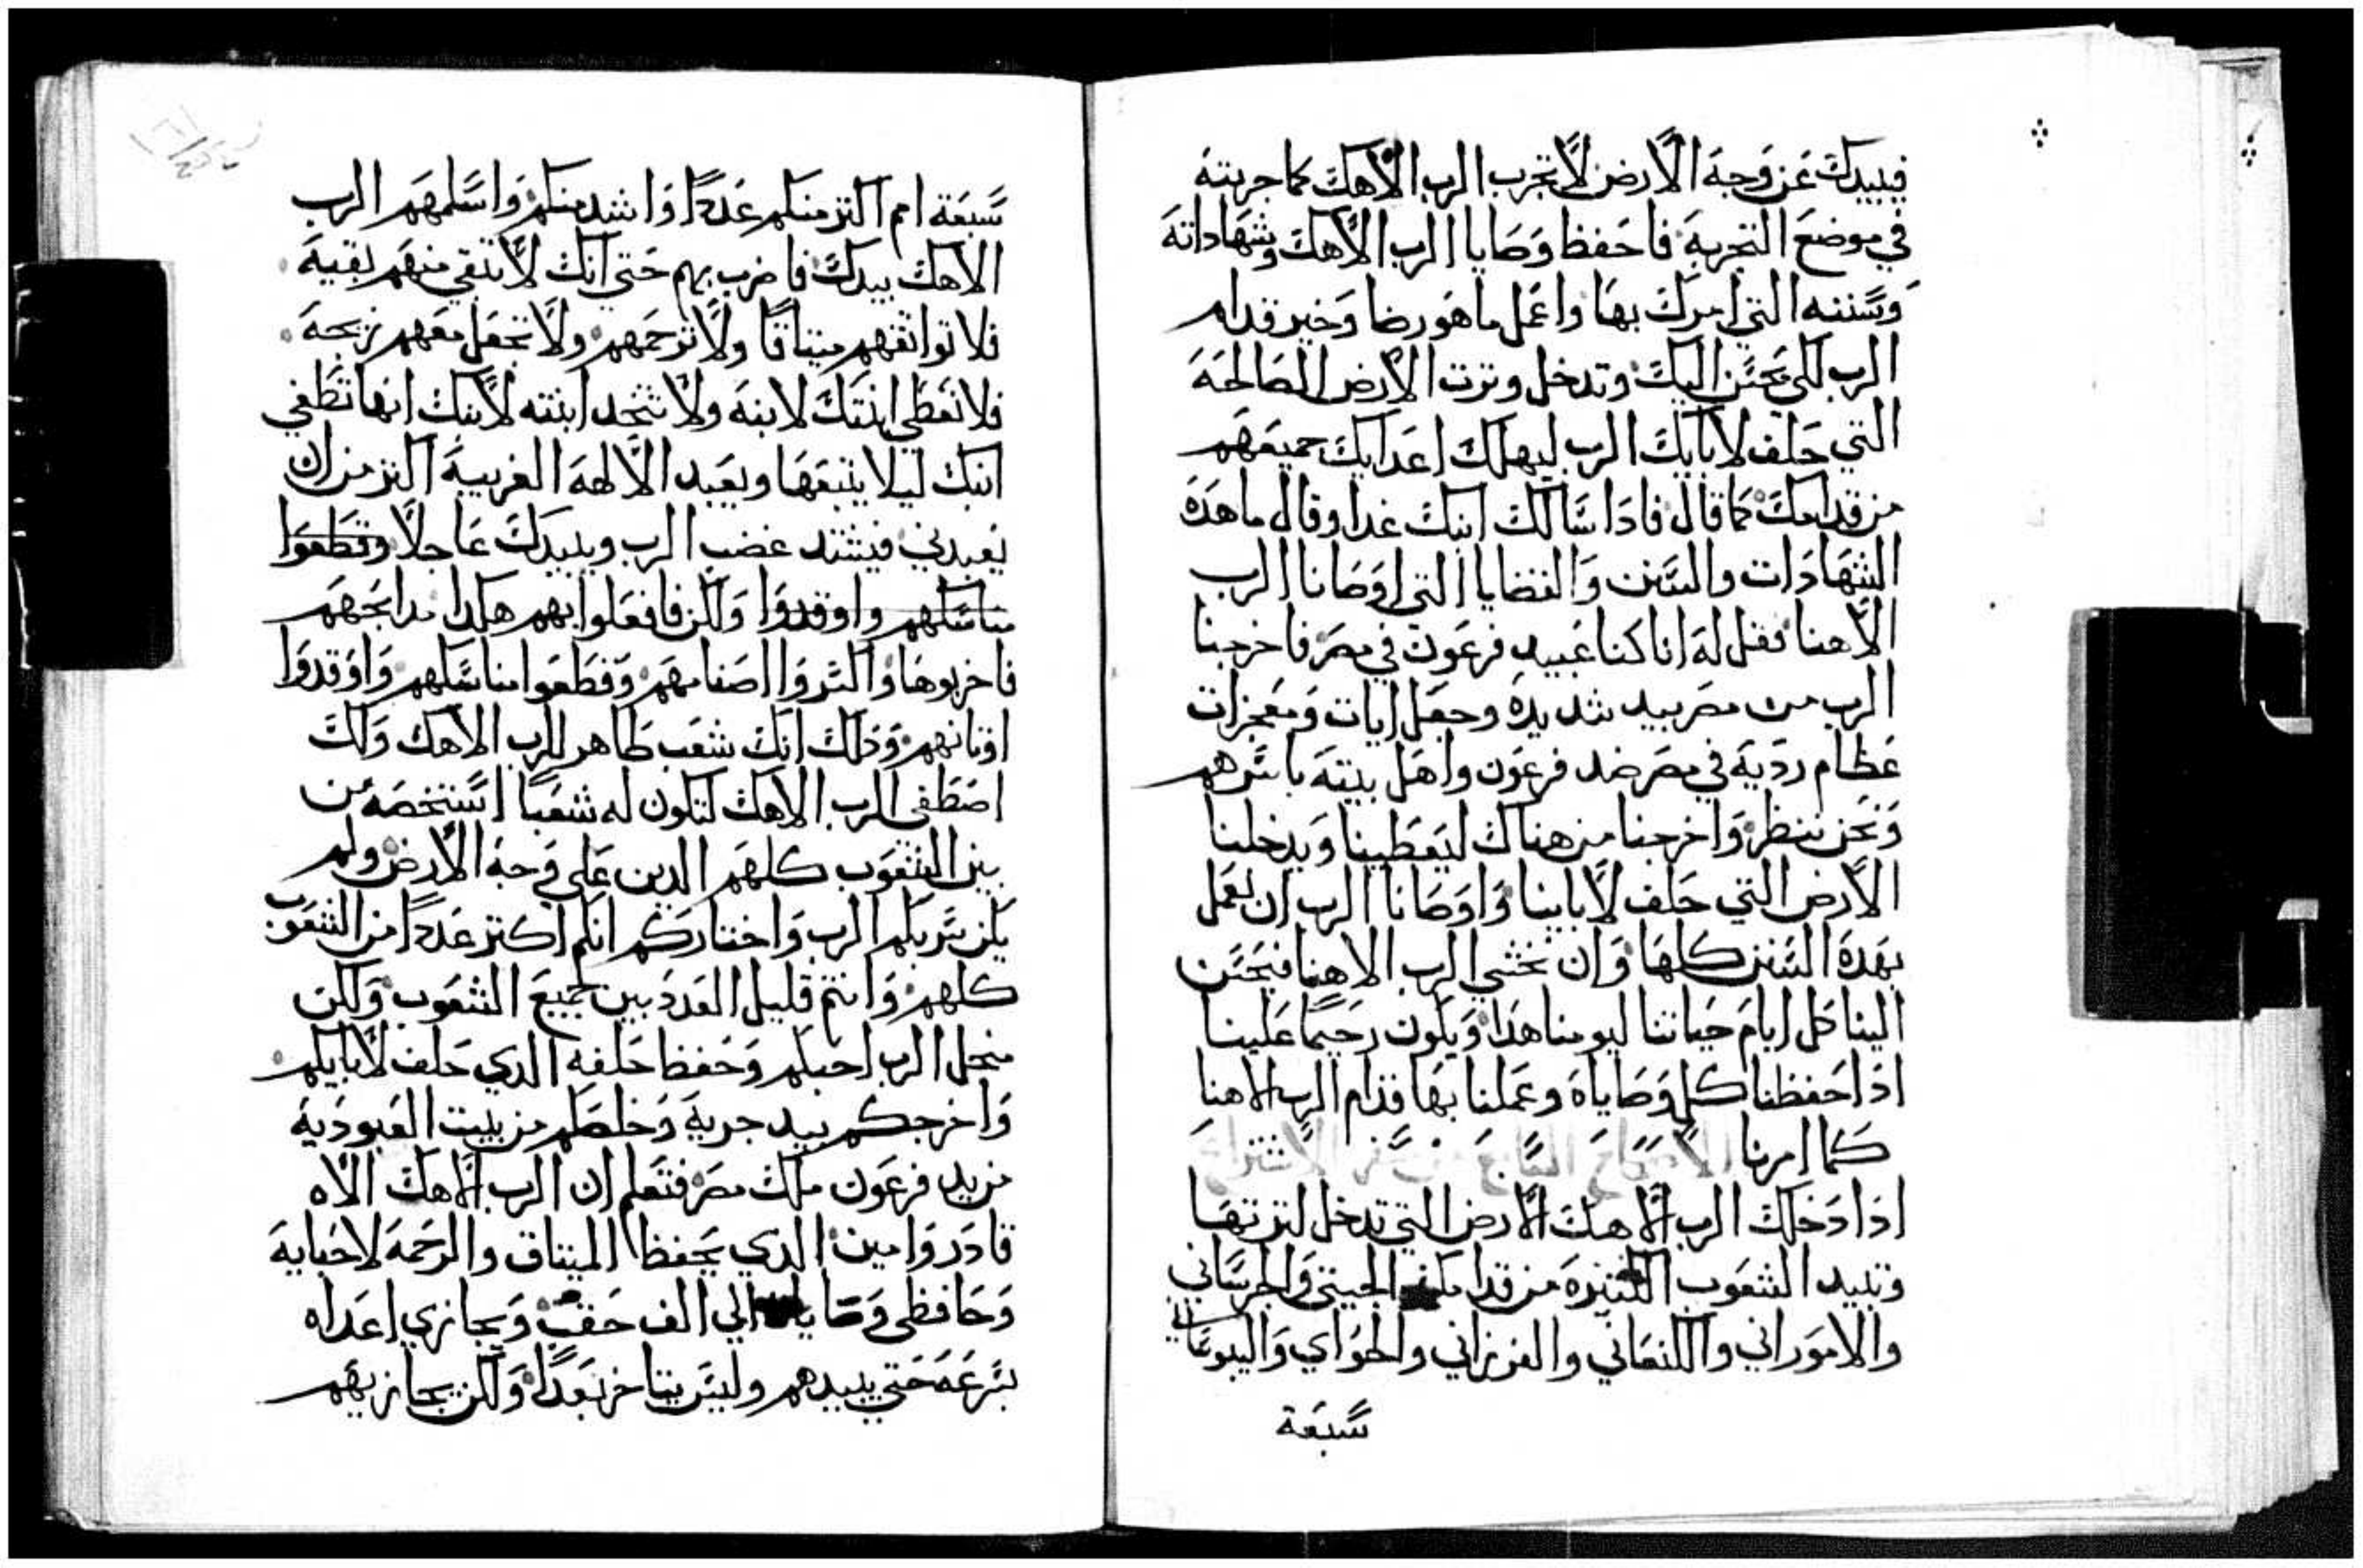 فيبيدك عن وجه الارض لا تجرب الرب الاهك كما جربته
في موضع التجربة فاحفظ وصايا الرب الاهك وشهاداته
وسننه التي امرك بها واعمل ما هو رضا وخير قدام
الرب لكي يحسن اليك وتدخل وترث الارض الصالحة
التي حلف لابايك الرب ليهلك اعدايك جميعهم
من قدامك كما قال فاذا سالك ابنك غدا وقال ما هده
الشهادات والسنن والقضايا التي اوصانا الرب
الاهنا فقل له انا كنا عبيد فرعون في مصر فاخرجنا
الرب من مصر بيد شديدة وجعل ايات ومعجزات
عظام ردية في مصر ضد فرعون واهل بيته باسرهم
ونحن ننظر واخرجنا من هناك ليعطينا ويدخلنا
الارض التي حلف لاباينا واوصانا الرب ان نعمل
بهده السنن كلها وان نخشي الرب الاهنا فيحسن
الينا كل ايام حياتنا ليومنا هدا ويكون رحيما علينا
اذا حفظنا كل وصاياه وعملنا بها قدام الرب الاهنا
كما امرنا
اذا دخلك الرب الاهك الارض التي تدخل لترتها
وتبيد الشعوب الكتيرة من قدامك الحيتي والجرساني
والاموراني والكنعاني والفرزاني والحواي واليبوساني
سبعة
سبعة امم اكتر منكم عددا واشد منكم واسلمهم الرب
الاهك بيدك فاضرب بهم حتي انك لا تبقي منهم بقية
فلا تواتقهم ميتاقا ولا ترحمهم ولا تجعل معهم زيجة
فلا تعطي ابنتك لابنه ولا تتخد ابنته لابنك انها تطغي
ابنك ليلا يتبعها ويعبد الالهة الغريبة اكتر من ان
يعبدني فيشتد غضب الرب ويبيدك عاجلا وقطعوا
مناسكهم واوقدوا ولكن فافعلوا بهم هكدا مدابحهم
فاخربوها واكسروا اصنامهم وقطعوا مناسكهم واوقدوا
اوتانهم وذلك انك شعب طاهر للرب الاهك ولك
اصطفي الرب الاهك لتكون له شعبا استخصه من
بين الشعوب كلهم الدين علي وجه الارض ولم
يكن سر بكم الرب واختاركم انكم اكتر عددا من الشعوب
كلهم وانتم قليل العدد بين جميع الشعوب ولكن
منجل الرب احبكم وحفظ حلفه الدي حلف لابايكم
واخرجكم بيد جرية وخلصكم من بيت العبودية
من يد فرعون ملك مصر فتعلم ان الرب الاهك الاه
قادر وامين الدي يحفظ الميتاق والرحمة لاحبايه
وحافظي وصاياه الي الف حقب ويجازي اعداه
بسرعة حتي يبيدهم وليس يتاخر بعدا ولكن يجازيهم